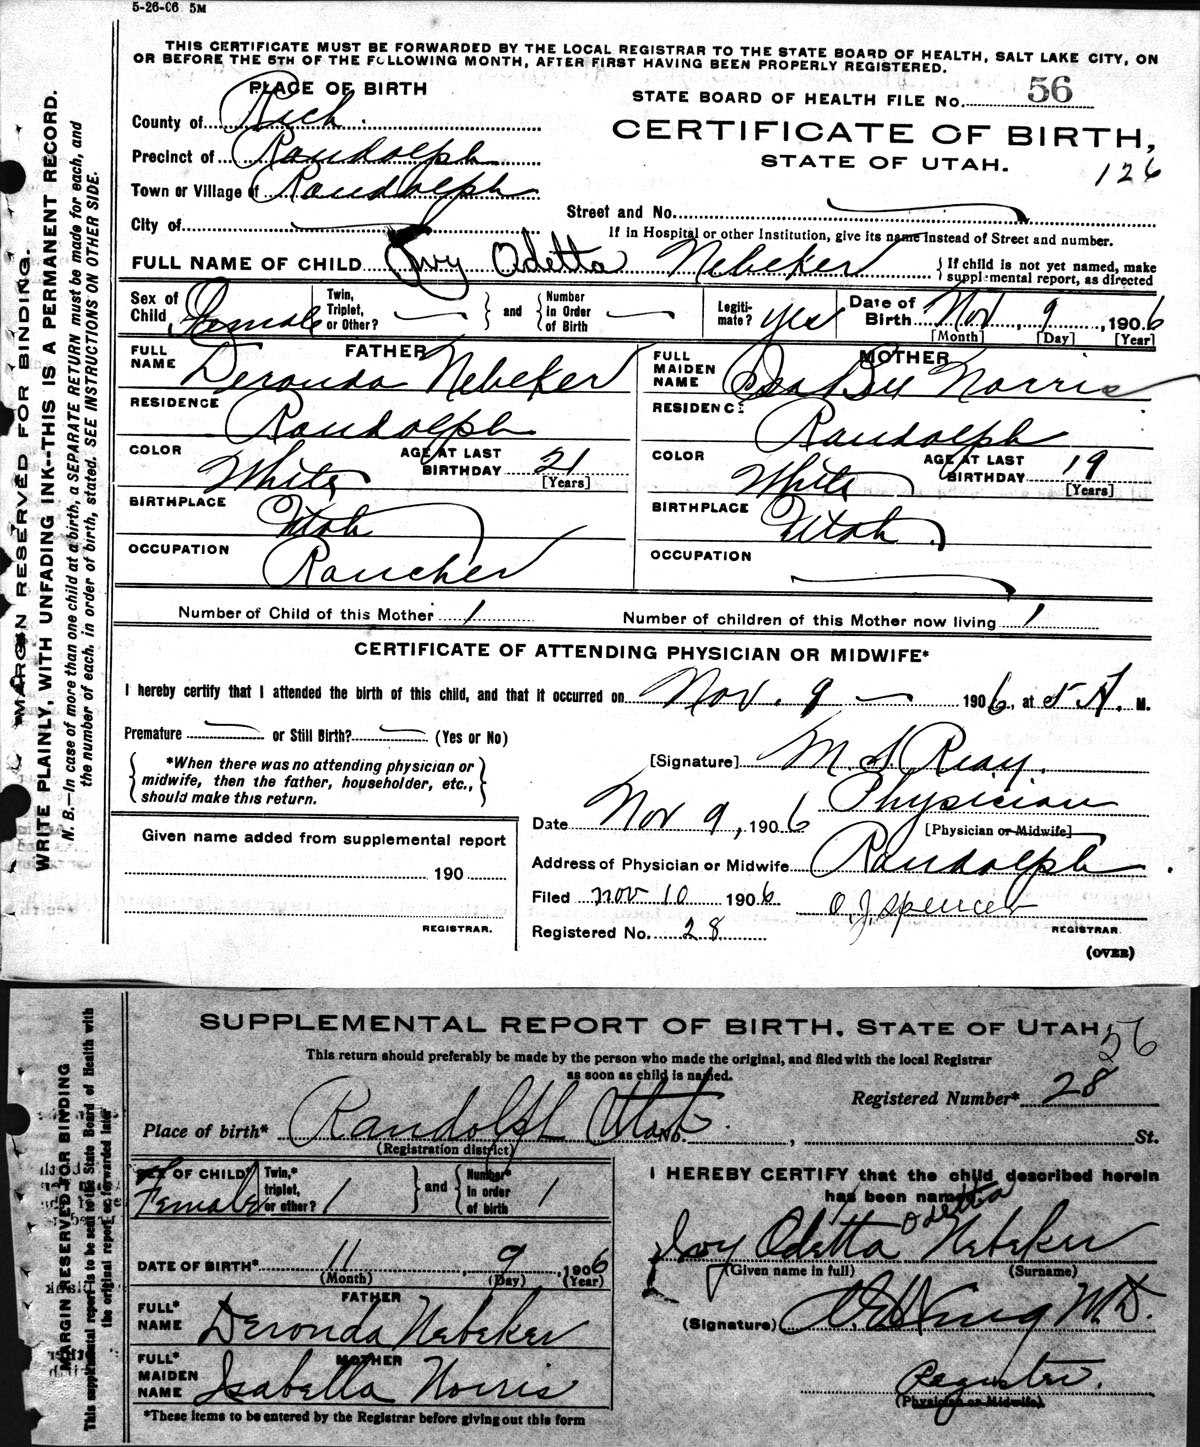 5-26-06 5M
THIS CERTIFICATE MUST BE FORWARDED BY THE LOCAL REGISTRAR TO THE STATE BOARD OF HEALTH, SALT LAKE CITY, ON
OR BEFORE THE 5TH OF THE FOLLOWING MONTH, AFTER FIRST HAVING BEEN PROPERLY REGISTERED.
PLACE OF BIRTH
STATE BOARD OF HEALTH FILE No. 56
County of Rich.
CERTIFICATE OF BIRTH,
Precinct of Randolph
STATE OF UTAH.
126
Town or Village of Randolph
Street and No.
City of
If in Hospital or other Institution, give its name instead of Street and number.
FULL NAME OF CHILD Ivy Odetta Nebeker { If child is not yet named, make
supplemental report, as directed
Sex of Child Female Twin, Triplet, or Other? } and { Number in Order of Birth Legiti- mate? yes Date of Birth Nov, 9, 1906
[Month] [Day] [Year]
FATHER
FULL NAME Deronda Nebeker
RESIDENCE Randolph
COLOR White AGE AT LAST BIRTHDAY 21
[Years]
BIRTHPLACE Utah
OCCUPATION Rancher
MOTHER
FULL MAIDEN NAME Norris
RESIDENCE Randolph
COLOR White AGE AT LAST BIRTHDAY 19
[Years]
BIRTHPLACE Utah
OCCUPATION
Number of Child of this Mother 1 Number of children of this Mother now living 1
CERTIFICATE OF ATTENDING PHYSICIAN OR MIDWIFE*
I hereby certify that I attended the birth of this child, and that it occurred on Nov. 9 1906, at 5 A. M.
Premature or Still Birth? (Yes or No)
{ *When there was no attending physician or
midwife, then the father, householder, etc.,
should make this return. }
[Signature] M. S. Reay.
Physician
Date Nov 9, 1906 [Physician or Midwife]
Address of Physician or Midwife Randolph
Filed Nov 10 1906 O. J. Spencer
Registered No. 28 REGISTRAR.
(OVER)
Given name added from supplemental report
190
REGISTRAR.
MARGIN RESERVED FOR BINDING.
WRITE PLAINLY, WITH UNFADING INK--THIS IS A PERMANENT RECORD.
N. B.—In case of more than one child at a birth, a SEPARATE RETURN must be made for each, and
the number of each, in order of birth, stated. SEE INSTRUCTIONS ON OTHER SIDE.
SUPPLEMENTAL REPORT OF BIRTH, STATE OF UTAH
56
This return should preferably be made by the person who made the original, and filed with the local Registrar
as soon as child is named.
Registered Number* 28
Place of birth* Randolph Utah. No. , St.
(Registration district)
SEX OF CHILD* Female Twin,* triplet, or other? 1 } and { Number* in order of birth 1
DATE OF BIRTH* 11, 9, 1906
(Month) (Day) (Year)
FATHER
FULL* NAME Deronda Nebeker
MOTHER
FULL* MAIDEN NAME Isabella Norris
*These items to be entered by the Registrar before giving out this form
I HEREBY CERTIFY that the child described herein
has been named
Odetta
Ivy Odetta Nebeker
(Given name in full) (Surname)
(Signature) M.D.
Register.
(Physician or Midwife)
MARGIN RESERVED FOR BINDING
This supplemental report is to be sent to the State Board of Health with
the original report or forwarded later